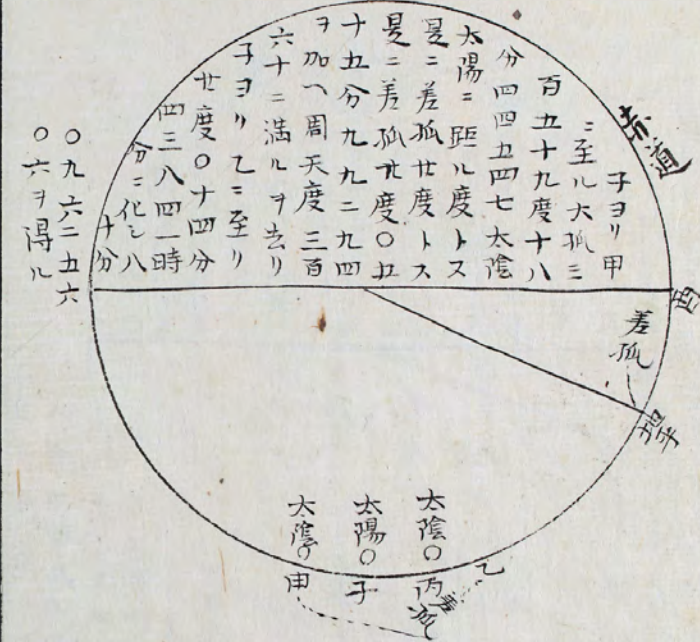 赤道
子ヨリ甲
ニ至ル大孤三
百五十九度十八
分四四五四七太陰
太陽ニ距ル度トス
是ニ差孤廿度トス
是ニ差孤廿度〇五
十五分九九二九四
ヲ加ヘ周天度三百
六十ニ満ルヲ去リ
子ヨリ乙ニ至リ
廿度〇十四分
四三八四一時
分ニ化シ八
十分
〇九六二五六
〇六ヲ得ル
酉
差孤
地平
乙
太陰〇丙
差孤
太陽〇子
太陰〇甲